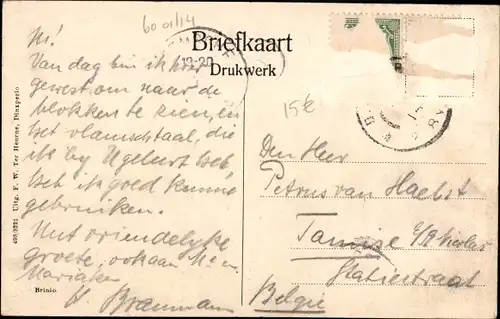 60 01/14
Briefkaart
Drukwerk
12-20
15€
Hr!
Van dag ben ik hier
geweest om naar de
blokken te zien, en
het vlamsch taal, die
ik by U geleurt heb
heb ik goed kunne
gebruiken.
Met vriendelyke
groete, ook aan
H. Braumann
Den Heer
Petrus van Haelst
Tamise
Statiestraat
Belgie
490,9221 Uitg. F. W. Ter Hoerne, Dinxperlo
Brinio.